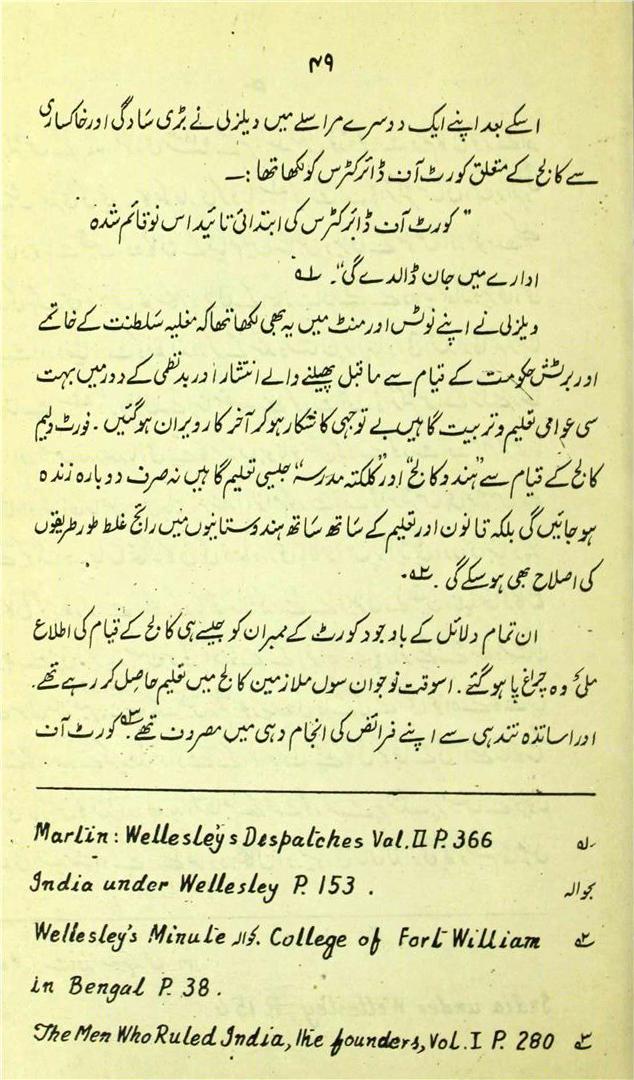 ۴۹
اسکے بعد اپنے ایک دوسرے مراسلے میں ویلزلی نے بڑی سادگی اور خاکساری
سے کالج کے متعلق کورٹ آف ڈائرکٹرس کو لکھا تھا :۔
" کورٹ آف ڈائرکٹرس کی ابتدائی تائید اس نو قائم شدہ
ادارے میں جان ڈالدے گی"۔ ۱ہ
ویلزلی نے اپنے نوٹس اور منٹ میں یہ بھی لکھا تھا کہ مغلیہ سلطنت کے خاتمے
اور برٹش حکومت کے قیام سے ماقبل پھیلنے والے انتشار اور بدنظمی کے دور میں بہت
سی عوامی تعلیم و تربیت گاہیں بے توجہی کا شکار ہو کر آخر کار ویران ہوگئیں ۔ فورٹ ولیم
کالج کے قیام سے "ہندو کالج" اور "کلکتہ مدرسہ" جیسی تعلیم گاہیں نہ صرف دوبارہ زندہ
ہو جائیں گی بلکہ قانون اور تعلیم کے ساتھ ساتھ ہندوستانیوں میں رائج غلط طور طریقوں
کی اصلاح بھی ہو سکے گی ۔ ۲ہ
ان تمام دلائل کے باوجود کورٹ کے ممبران کو جیسے ہی کالج کے قیام کی اطلاع
ملی وہ چراغ پا ہوگئے ۔ اسوقت نوجوان سول ملازمین کالج میں تعلیم حاصل کر رہے تھے۔
اور اساتذہ تندہی سے اپنے فرائض کی انجام دہی میں مصروف تھے ۳ہ کورٹ آف
۱ہ Martin: Wellesley's Despatches Vol. II P. 366
بحوالہ India under Wellesley P. 153 .
۲ہ Wellesley's Minute بحوالہ College of Fort William
in Bengal P. 38 .
۳ہ The Men Who Ruled India, the founders, Vol. I P. 280